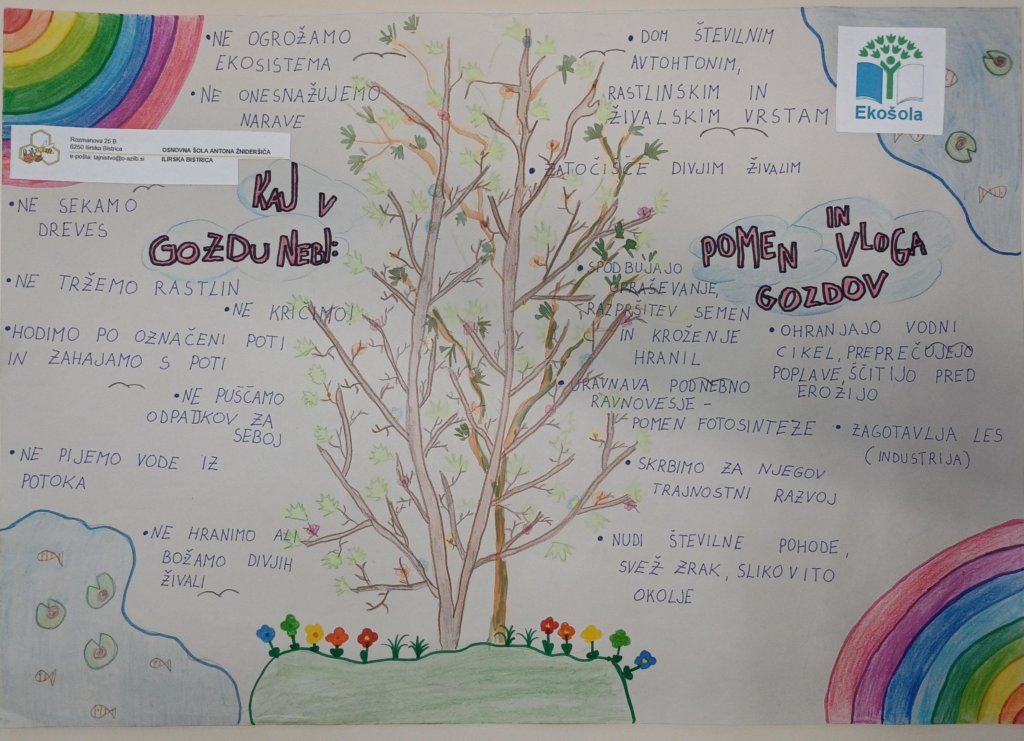 NE OGROŽAMO
EKOSISTEMA
NE ONESNAŽUJEMO
NARAVE
Rozmanova 25 B
6250 Ilirska Bistrica
e-pošta: tajnistvo@o-azilb.si
OSNOVNA ŠOLA ANTONA ŽNIDERŠIČA
ILIRSKA BISTRICA
KAJ V
GOZDU NEBI:
NE SEKAMO
DREVES
NE TRŽEMO RASTLIN
NE KRIČIMO!
HODIMO PO OZNAČENI POTI
IN ZAHAJAMO S POTI
NE PUŠČAMO
ODPADKOV ZA
SEBOJ
NE PIJEMO VODE IZ
POTOKA
NE HRANIMO ALI
BOŽAMO DIVJIH
ŽIVALI
DOM ŠTEVILNIM
AVTOHTONIM,
RASTLINSKIM IN
ŽIVALSKIM VRSTAM
ZATOČIŠČE DIVJIM ŽIVALIM
Ekošola
POMEN IN VLOGA
GOZDOV
SPODBUJAJO
OPRAŠEVANJE,
RAZPRŠITEV SEMEN
IN KROŽENJE
HRANIL
URAVNAVA PODNEBNO
RAVNOVESJE -
POMEN FOTOSINTEZE
OHRANJAJO VODNI
CIKEL, PREPREČUJEJO
POPLAVE, ŠČITIJO PRED
EROZIJO
ZAGOTAVLJA LES
(INDUSTRIJA)
SKRBIMO ZA NJEGOV
TRAJNOSTNI RAZVOJ
NUDI ŠTEVILNE POHODE,
SVEŽ ZRAK, SLIKOVITO
OKOLJE